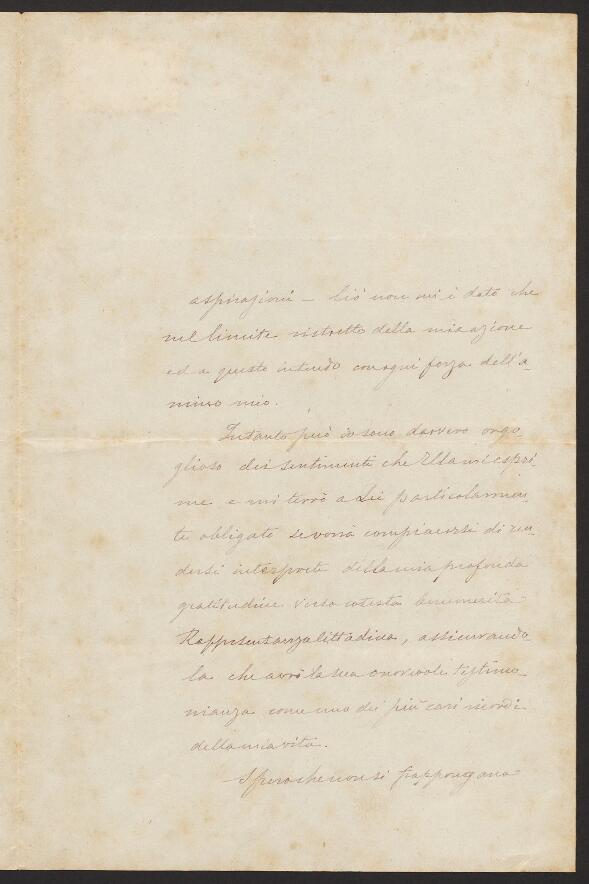 aspirazioni — Ciò non mi è dato che
nel limite ristretto della mia azione
ed a questo intendo con ogni forza dell'a-
nimo mio.
Intanto però io sono davvero orgo-
glioso dei sentimenti che Ella mi espri-
me e mi terrò a Lei particolarmen-
te obligato se vorrà compiacersi di ren-
dersi interprete della mia profonda
gratitudine verso cotesta benemerita
Rappresentanza Cittadina, assicurando-
la che avrò la sua onorevole testimo-
nianza come uno dei più cari ricordi
della mia vita.
Spero che non si frappongano